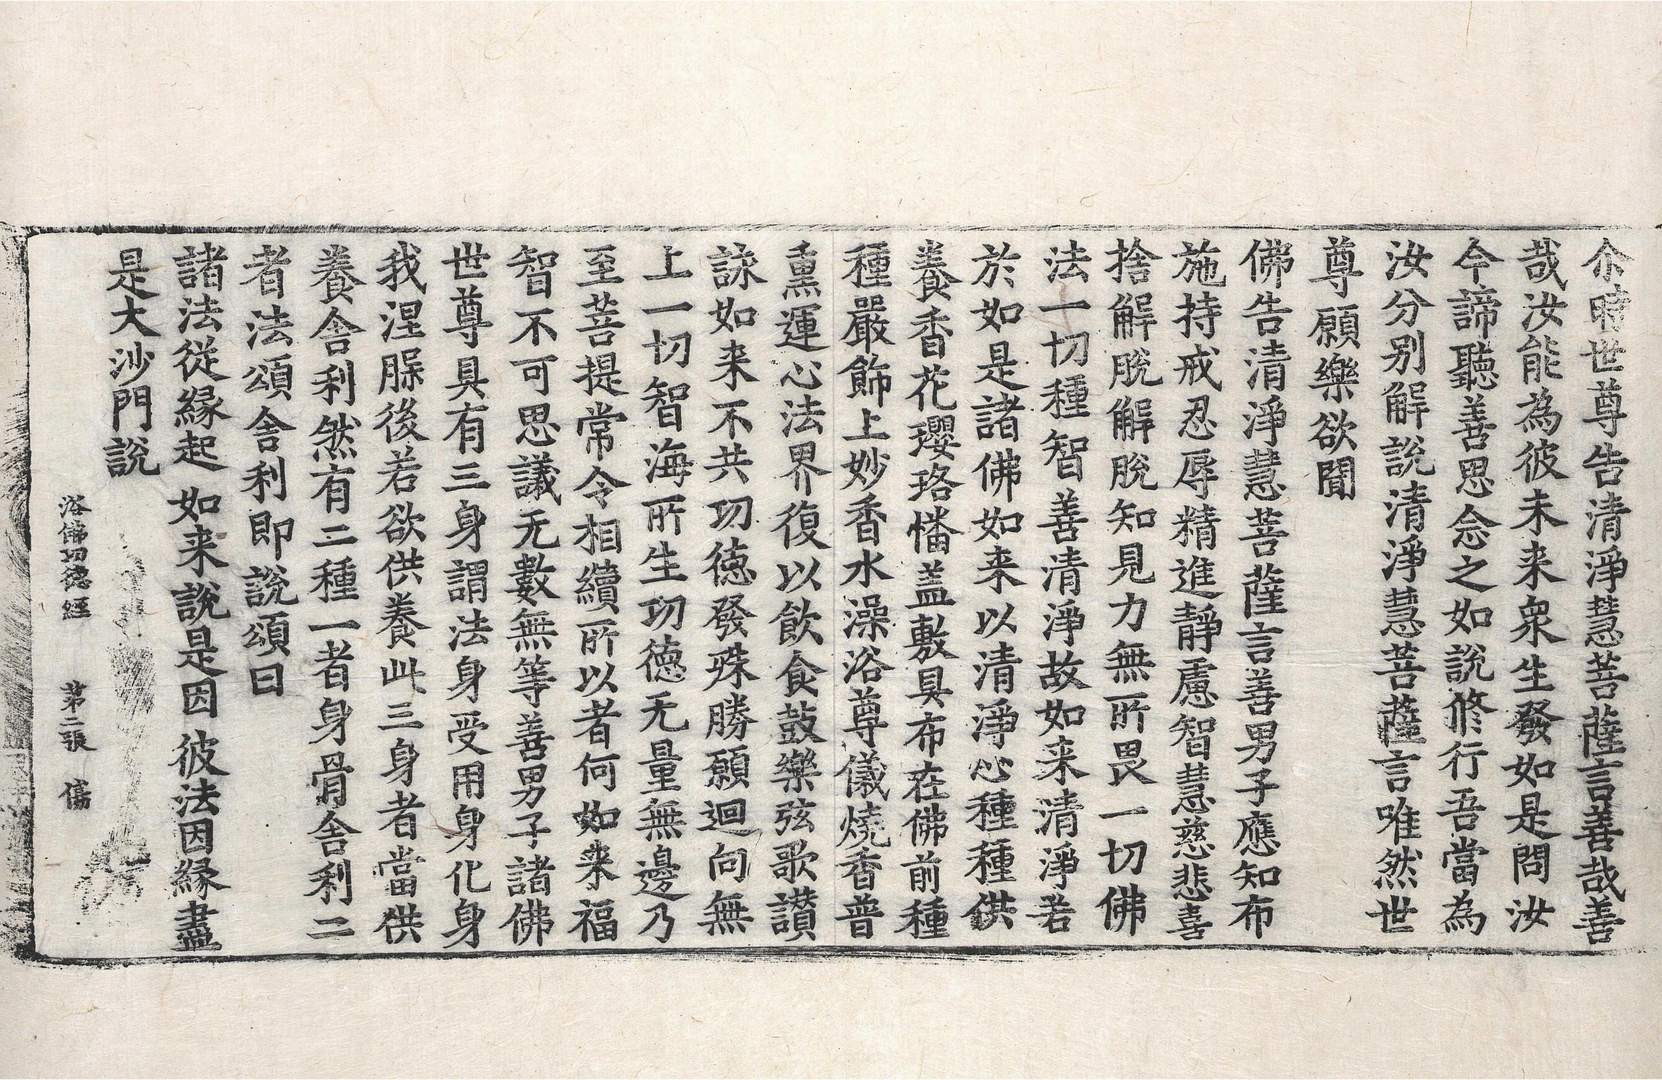 尒時世尊告清淨慧菩薩言善哉善
哉汝能為彼未来衆生發如是問汝
今諦聽善思念之如說修行吾當為
汝分別解說清淨慧菩薩言唯然世
尊願樂欲聞
佛告清淨慧菩薩言善男子應知布
施持戒忍辱精進靜慮智慧慈悲喜
捨解脫解脫知見力無所畏一切佛
法一切種智善清淨故如来清淨若
於如是諸佛如来以清淨心種種供
養香花瓔珞幡盖敷具布在佛前種
種嚴飾上妙香水澡浴尊儀燒香普
熏運心法界復以飲食鼓樂弦歌讃
詠如来不共功德發殊勝願迴向無
上一切智海所生功德无量無邊乃
至菩提常令相續所以者何如来福
智不可思議无數無等善男子諸佛
世尊具有三身謂法身受用身化身
我涅槃後若欲供養此三身者當供
養舍利然有二種一者身骨舍利二
者法頌舍利即說頌曰
諸法從緣起 如来說是因 彼法因緣盡
是大沙門說
浴佛功德經 第二張 傷